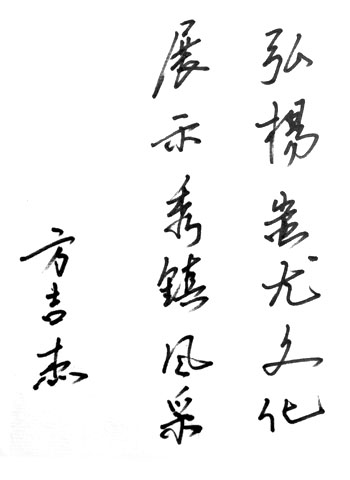 弘楊蚩尤文化
展示秀鎮風采
方吉杰